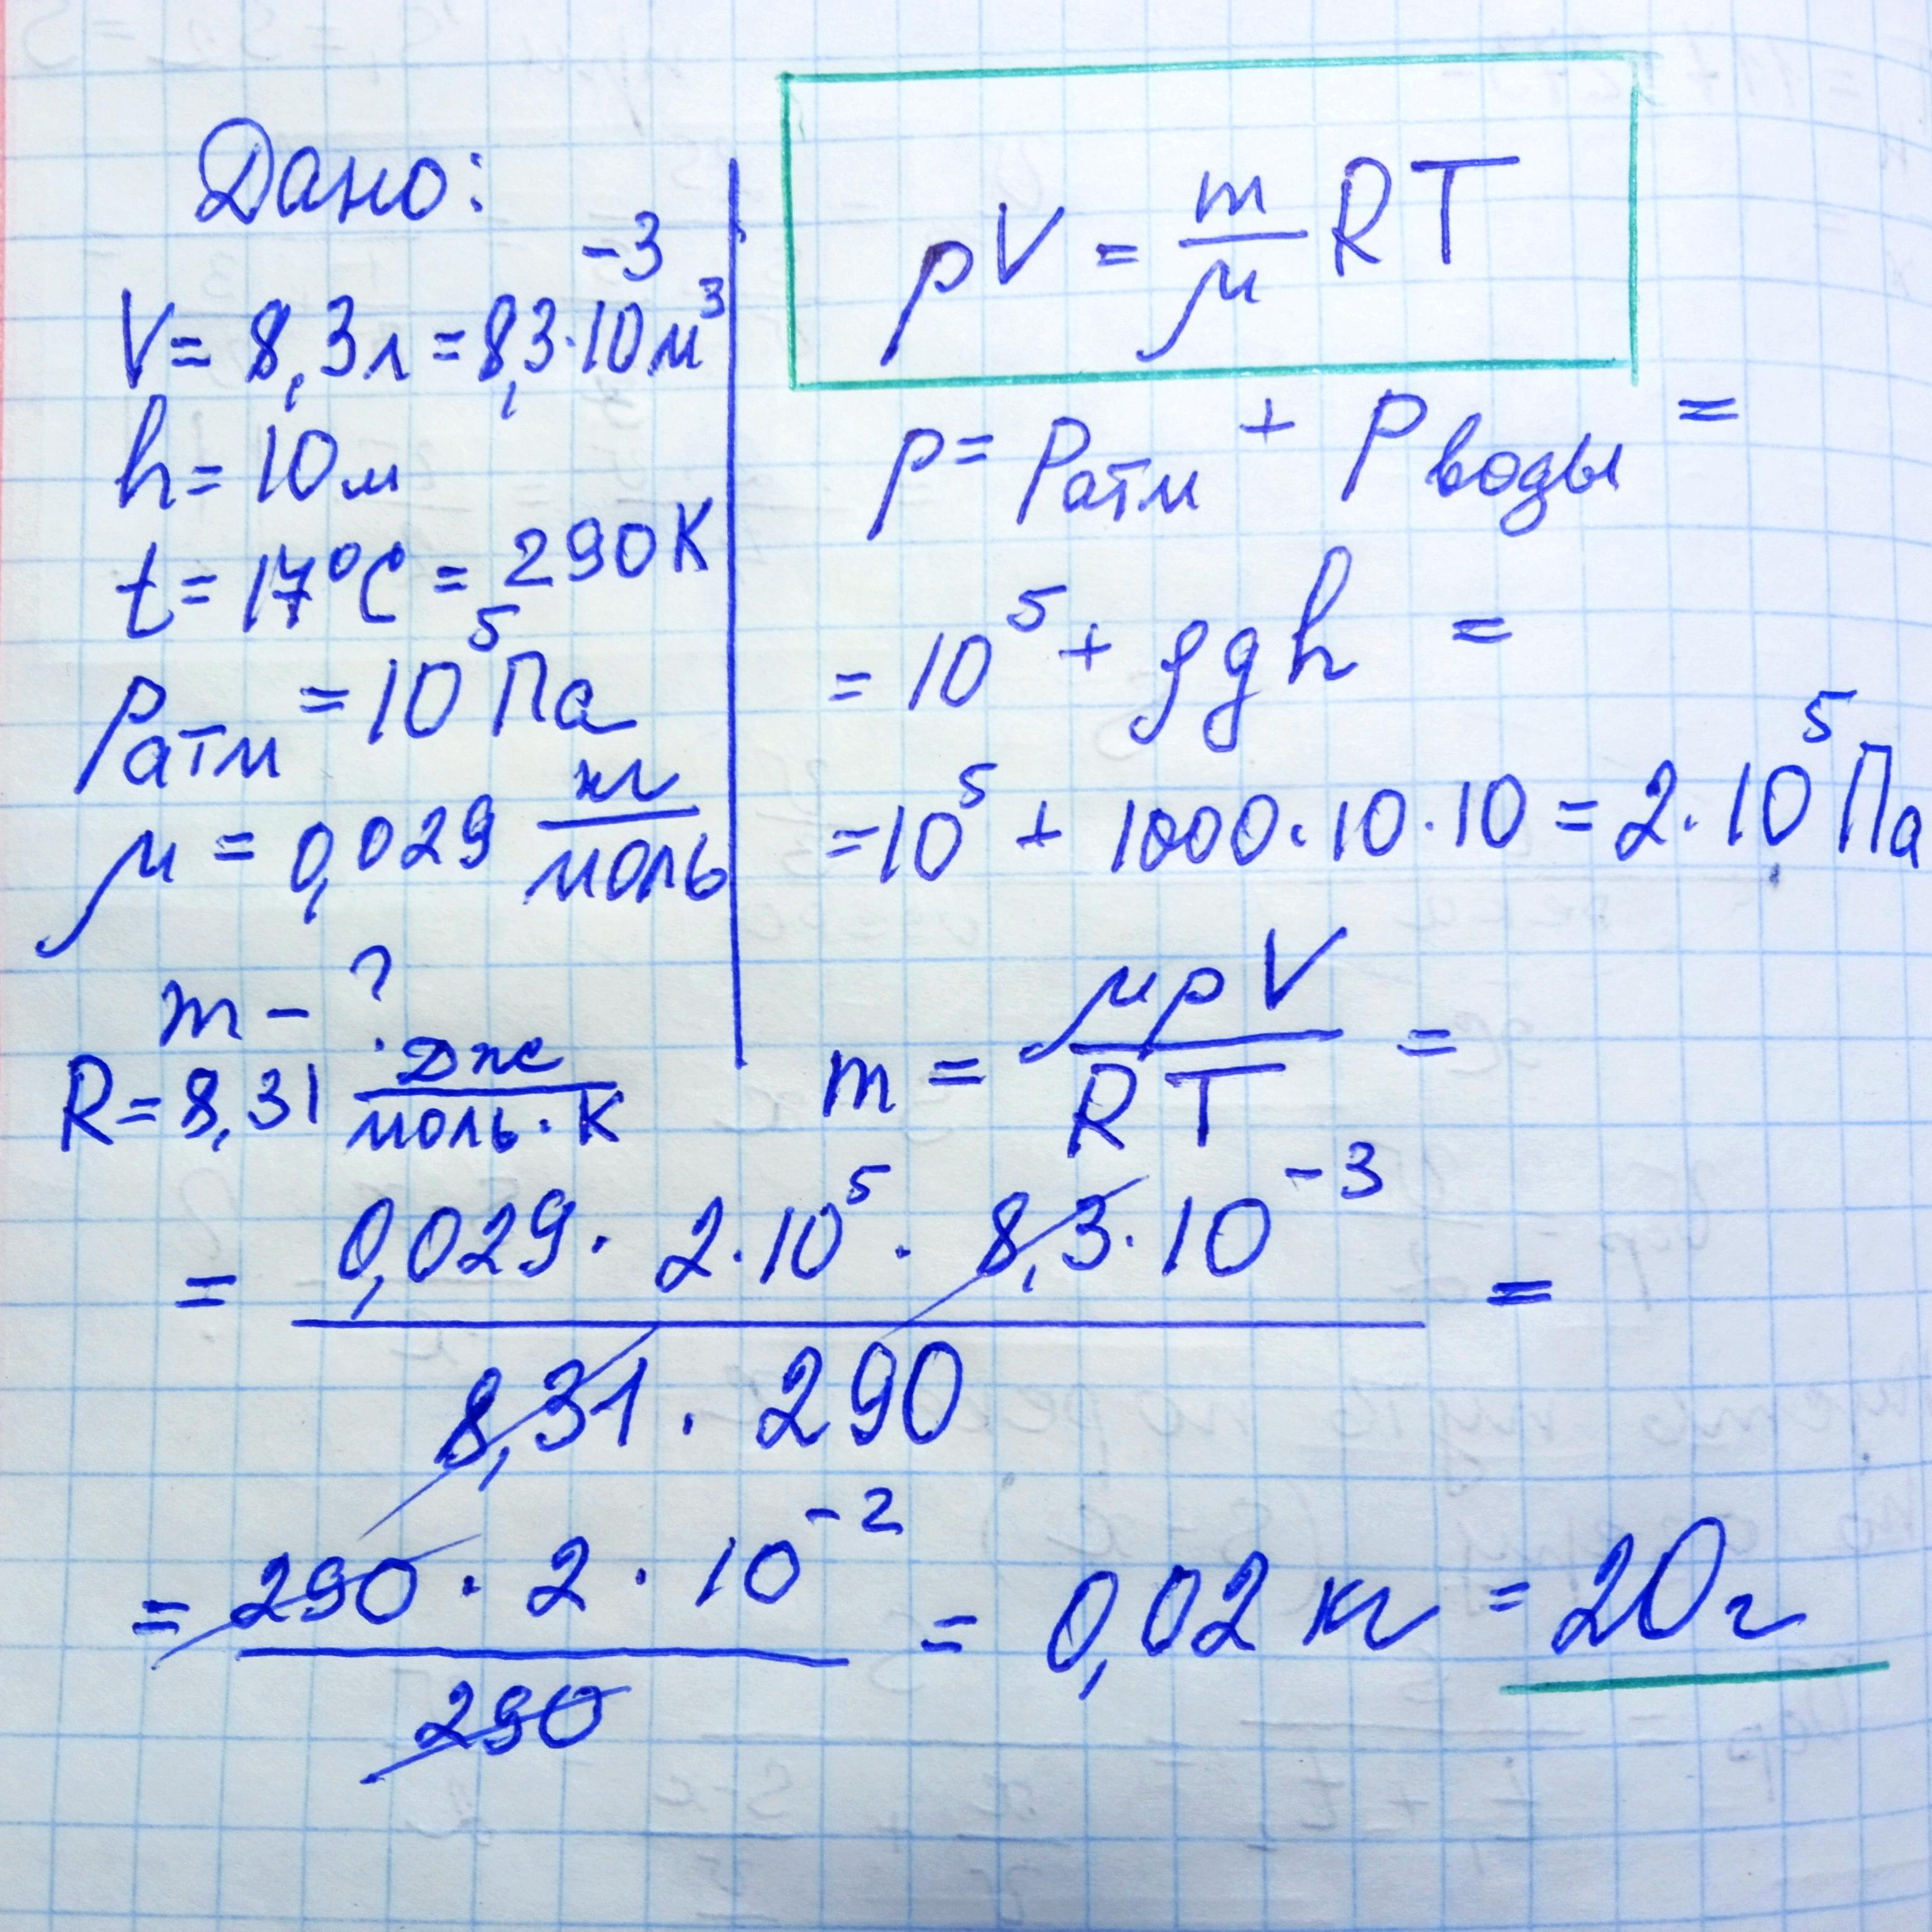 Дано:
V = 8,3 л = 8,3·10⁻³ м³
h = 10 м
t = 17°C = 290 K
Pатм = 10⁵ Па
μ = 0,029 кг/моль
m - ?
R = 8,31 Дж/моль·К
pV = m/μ RT
p = Pатм + Pводы =
= 10⁵ + ρgh =
= 10⁵ + 1000·10·10 = 2·10⁵ Па
m = μpV/RT =
= 0,029 · 2·10⁵ · 8,3·10⁻³ / 8,31 · 290 =
= 290 · 2 · 10⁻² / 290 = 0,02 кг = 20 г